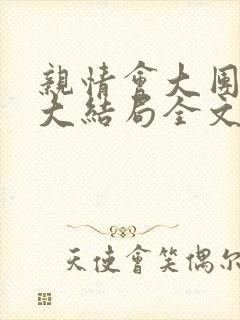 親情會大團
大結局全文
天使會笑偶尔